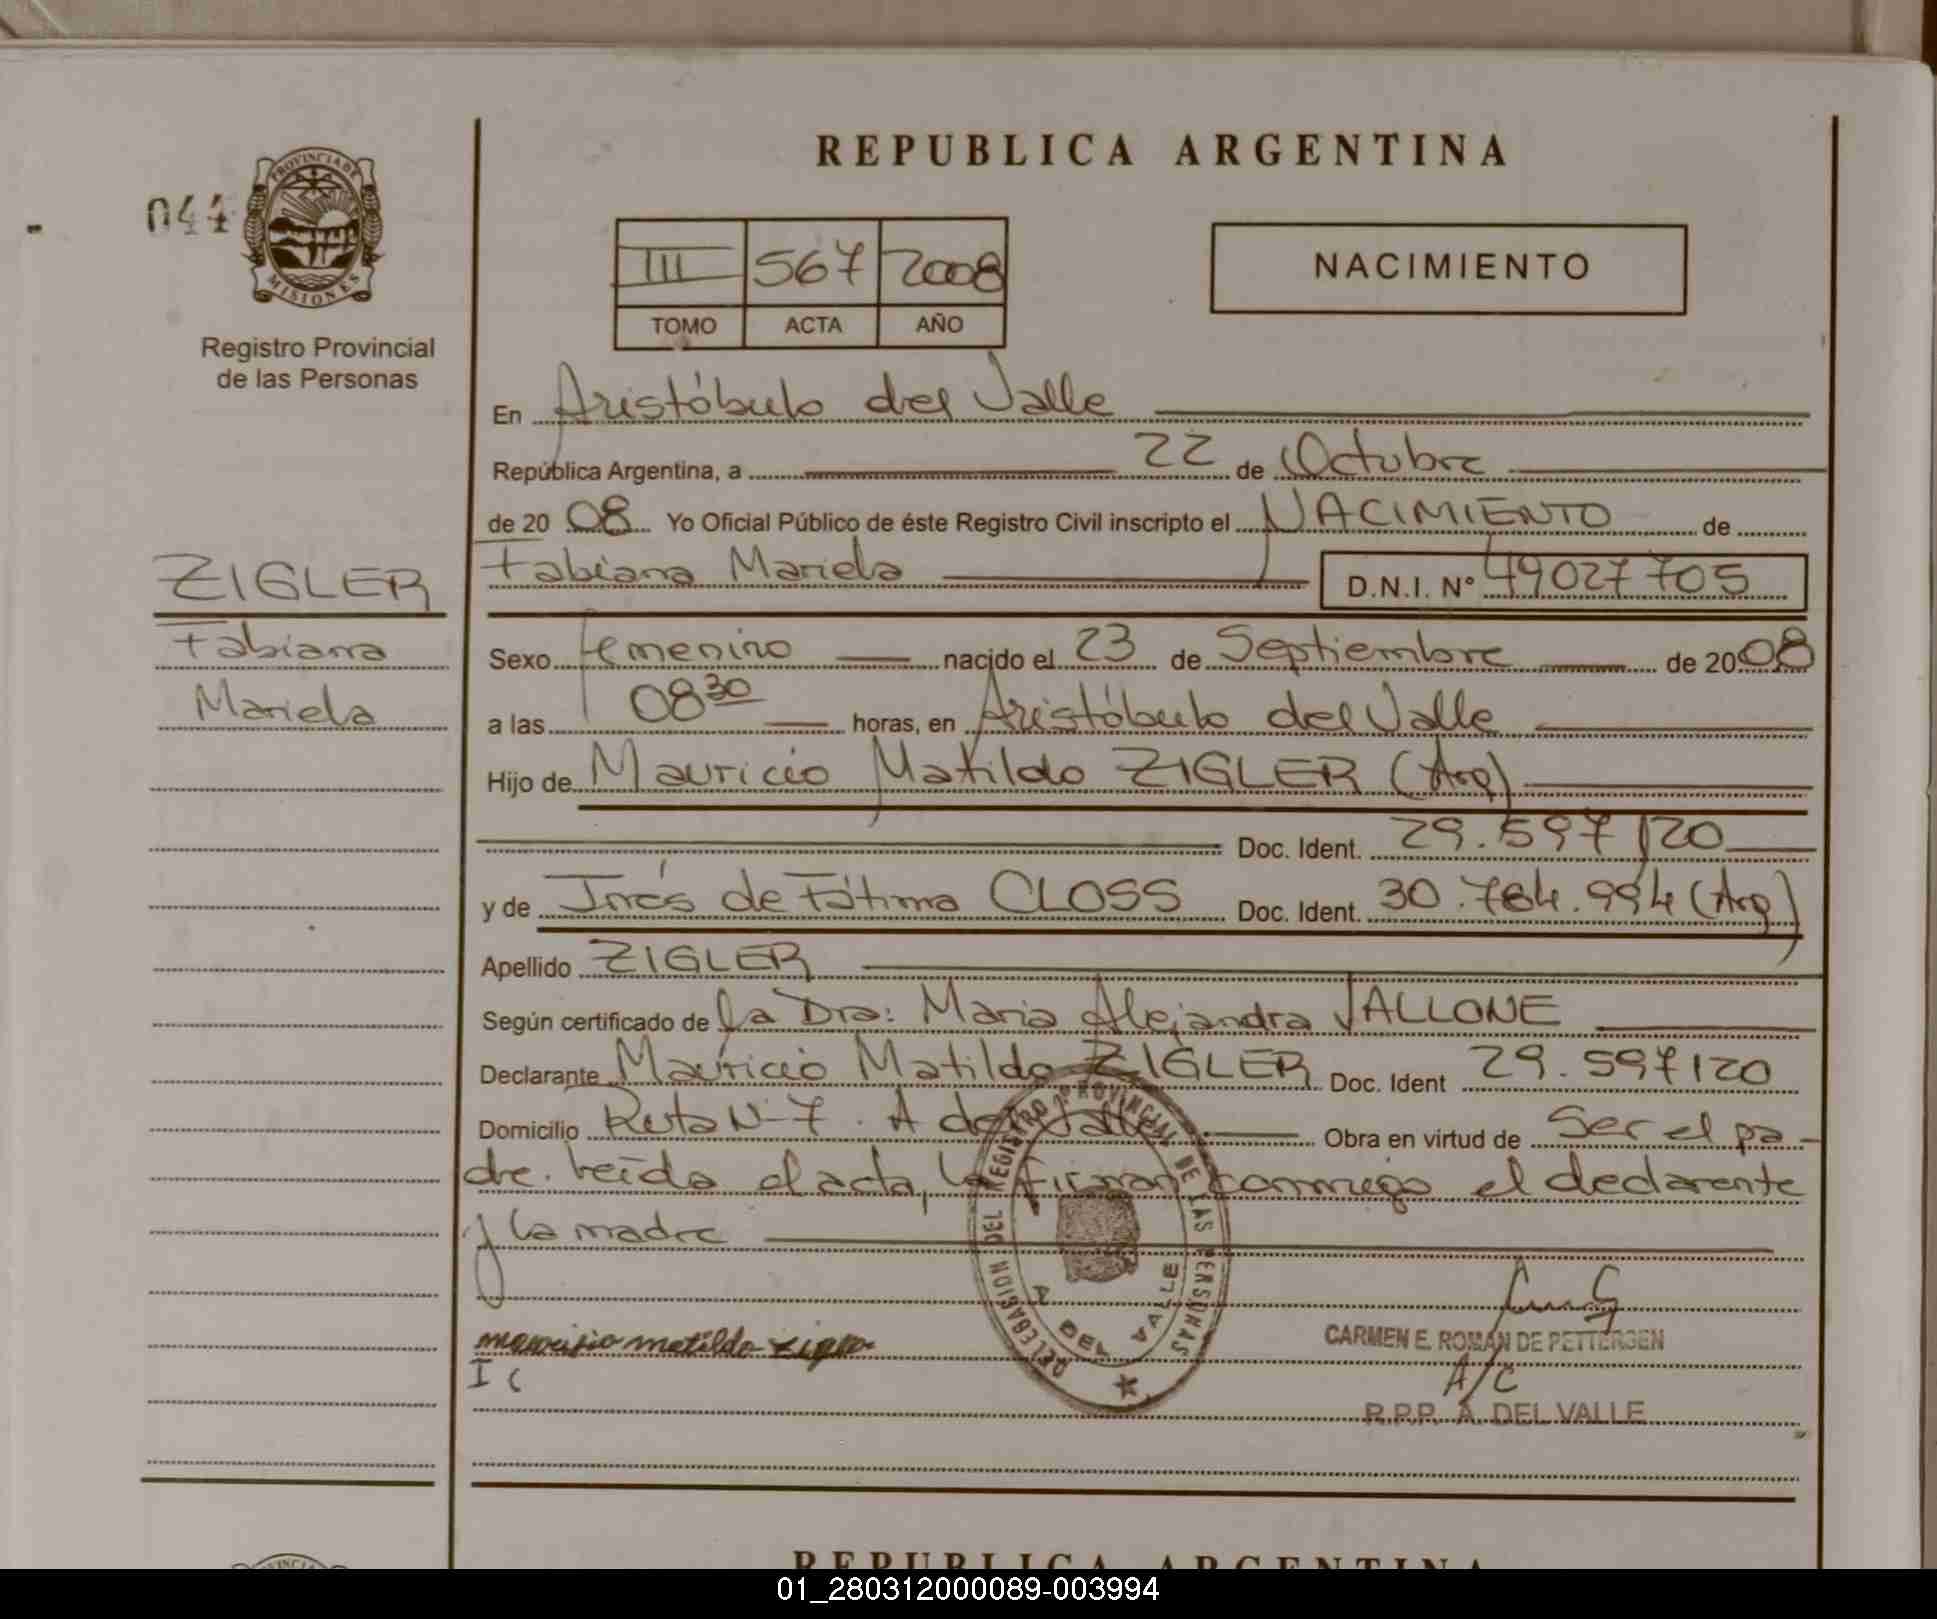 REPUBLICA ARGENTINA
044
PROVINCIA DE
MISIONES
Registro Provincial
de las Personas
III 567 2008
TOMO ACTA AÑO
NACIMIENTO
En Aristóbulo del Valle
República Argentina, a 22 de Octubre
de 20 08 Yo Oficial Público de éste Registro Civil inscripto el NACIMIENTO de
Fabiana Mariela D.N.I. N° 49027705
ZIGLER
Fabiana
Mariela
Sexo femenino nacido el 23 de Septiembre de 2008
a las 08 30 horas, en Aristóbulo del Valle
Hijo de Mauricio Matildo ZIGLER (Arg)
Doc. Ident. 29.597120
y de Inés de Fátima CLOSS Doc. Ident. 30.784.994 (Arg)
Apellido ZIGLER
Según certificado de la Dra: Maria Alejandra VALLONE
Declarante Mauricio Matildo ZIGLER Doc. Ident 29.597120
Domicilio Ruta N-7. A del Valle Obra en virtud de Ser el pa-
dre. leída el acta, la firman conmigo el declarente
y la madre
DELEGACION DEL REGISTRO PROVINCIAL DE LAS PERSONAS
A DEL VALLE
mauricio matildo zigler
I C
CARMEN E. ROMAN DE PETTERSEN
A/C
R.P.P. A. DEL VALLE
REPUBLICA ARGENTINA
01_280312000089-003994